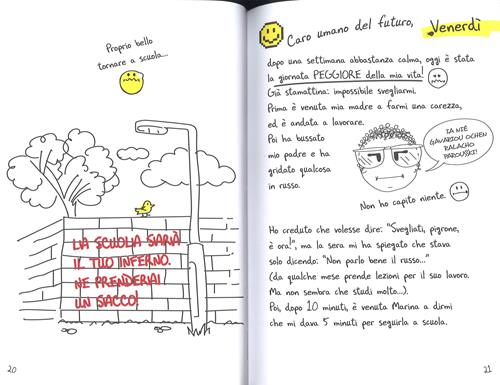 Proprio bello
tornare a scuola...
LA SCUOLA SARÀ
IL TUO INFERNO.
NE PRENDERAI
UN SACCO!
20
Caro umano del futuro,
Venerdì
dopo una settimana abbastanza calma, oggi è stata
la giornata PEGGIORE della mia vita!
Già stamattina: impossibile svegliarmi.
Prima è venuta mia madre a farmi una carezza,
ed è andata a lavorare.
Poi ha bussato
mio padre e ha
gridato qualcosa
in russo.
IA NIÈ
GAVARIOU OCHEN
BALACHO
PAROUSKI!
Non ho capito niente.
Ho creduto che volesse dire: "Svegliati, pigrone,
è ora!", ma la sera mi ha spiegato che stava
solo dicendo: "Non parlo bene il russo..."
(da qualche mese prende lezioni per il suo lavoro.
Ma non sembra che studi molto...).
Poi, dopo 10 minuti, è venuta Marina a dirmi
che mi dava 5 minuti per seguirla a scuola.
21